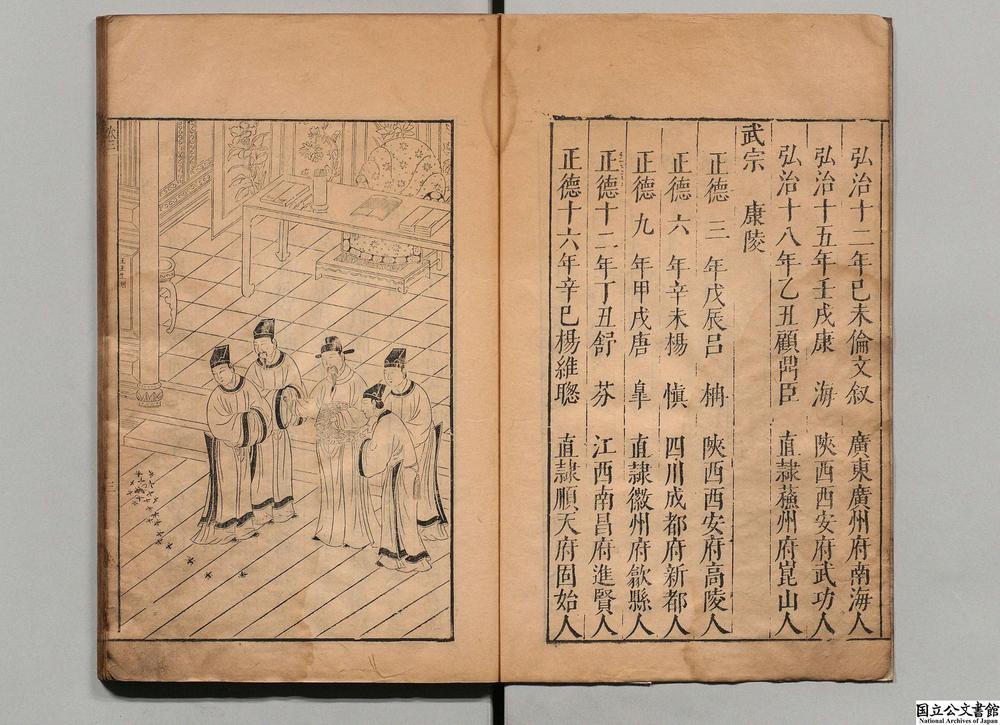 弘治十二年己未倫文叙 廣東廣州府南海人
弘治十五年壬戌康 海 陝西西安府武功人
弘治十八年乙丑顧鼎臣 直隸蘓州府崑山人
武宗 康陵
正德 三 年戊辰呂 柟 陝西西安府高陵人
正德 六 年辛未楊 慎 四川成都府新都人
正德 九 年甲戌唐 皐 直隸徽州府歙縣人
正德十二年丁丑舒 芬 江西南昌府進賢人
正德十六年辛巳楊維聦 直隸順天府固始人
国立公文書館
National Archives of Japan